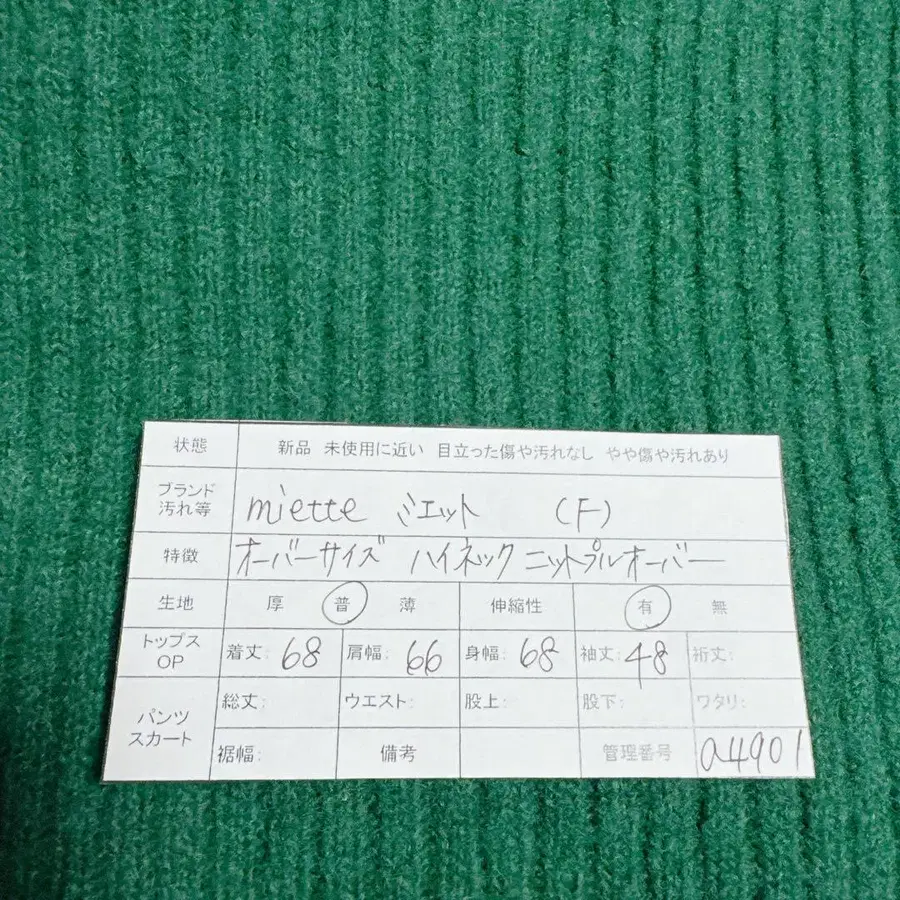 状態 新品 未使用に近い 目立った傷や汚れなし やや傷や汚れあり
ブランド 汚れ等 miette ミエット (F)
特徴 オーバーサイズ ハイネック ニットプルオーバー
生地 厚 普 薄 伸縮性 有 無
トップス OP 着丈: 68 肩幅: 66 身幅: 68 袖丈: 48 裄丈:
パンツ スカート 総丈: ウエスト: 股上: 股下: ワタリ:
裾幅: 備考 管理番号 a4901